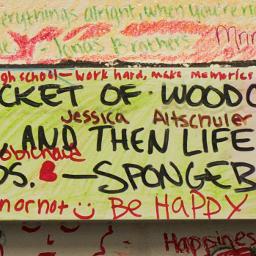 erything's alright, when you're n
Jonas Brothers
gh school - work hard, make memories
CKET OF WOOD
Jessica Altschuler
, AND THEN LIFE
obichaud
DS. — SPONGEB
n or not :) BE HAPPY
Happines